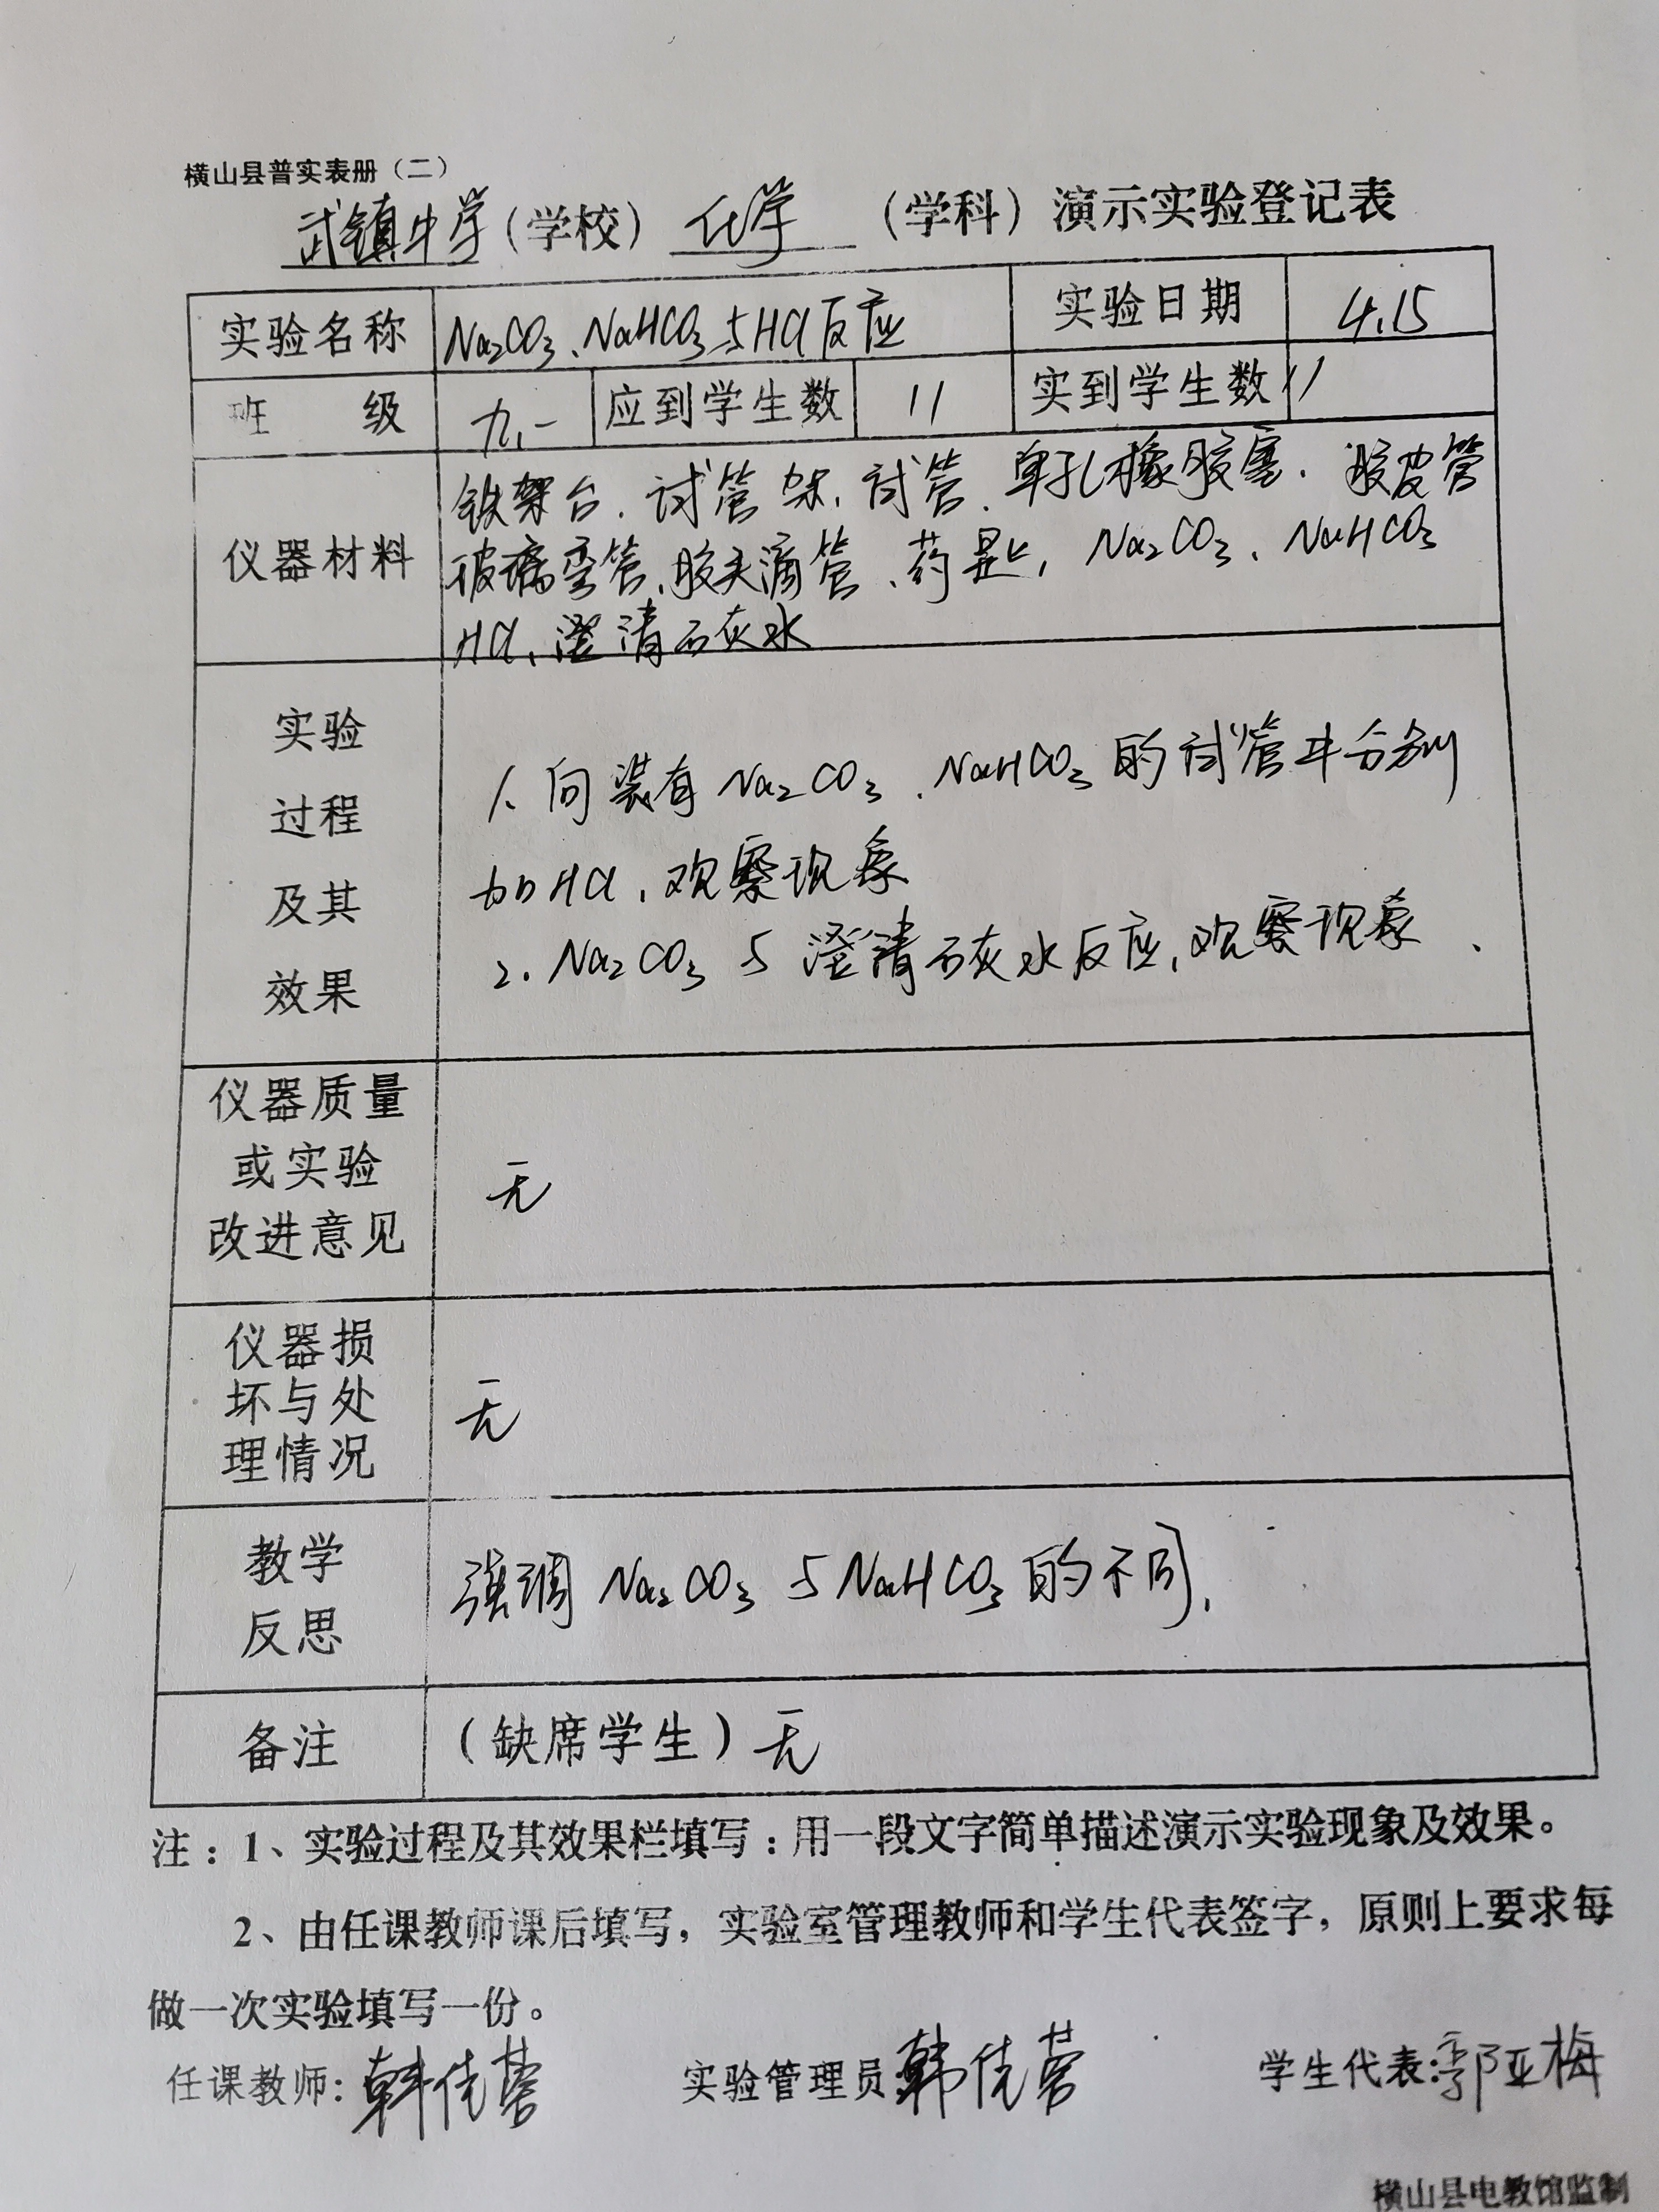 横山县普实表册（二）
武镇中学（学校） 化学 （学科）演示实验登记表
实验名称 Na₂CO₃、NaHCO₃与HCl反应 实验日期 4.15
班 级 九.一 应到学生数 11 实到学生数 11
仪器材料
铁架台、试管架、试管、单孔橡胶塞、胶皮管
玻璃弯管、胶头滴管、药匙、Na₂CO₃、NaHCO₃
HCl、澄清石灰水
实验
过程
及其
效果
1、向装有Na₂CO₃、NaHCO₃的试管中分别
加HCl，观察现象
2、Na₂CO₃与澄清石灰水反应，观察现象、
仪器质量
或实验
改进意见
无
仪器损
坏与处
理情况
无
教学
反思
强调Na₂CO₃与NaHCO₃的不同，
备注 （缺席学生）无
注：1、实验过程及其效果栏填写：用一段文字简单描述演示实验现象及效果。
2、由任课教师课后填写，实验室管理教师和学生代表签字，原则上要求每
做一次实验填写一份。
任课教师：韩佳蓉 实验管理员 韩佳蓉 学生代表：郭亚梅
横山县电教馆监制